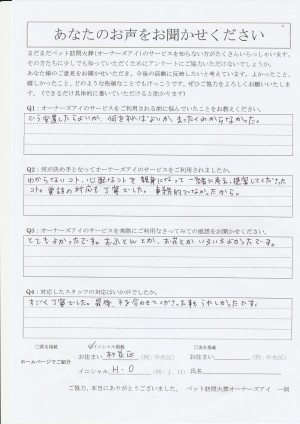 あなたのお声をお聞かせください
まだまだペット訪問火葬(オーナーズアイ)のサービスを知らない方がたくさんいらっしゃいます。
その方たちに少しでも知っていただくためにアンケートにご協力いただけないでしょうか。
あなた様のご意見をお聞かせいただき、今後の活動に反映したいと考えています。よかったこと、
嬉しかったこと、どのような些細なことでもけっこうです。ぜひご協力をよろしくお願いいたしま
す。(できるだけ具体的に書いていただけると助かります)
Q1:オーナーズアイのサービスをご利用される前に悩んでいたことをお教えください。
どう安置したらよいか、何をすればよいか、まったくわからなかった。
Q2:何が決め手となってオーナーズアイのサービスをご利用されましたか。
わからないコト、心配なコトを親身になって一緒に考え、提案してくださった
コト。電話の対応も丁寧でした。事務的でなかったから。
Q3:オーナーズアイのサービスを実際にご利用なさってみての感想をお聞かせください。
とてもよかったです。おふとんとか、お花とかいろいろよかったです。
Q4:対応したスタッフの対応はいかがでしたか。
すごく丁寧でした。最後、手を合わせてくださった事もうれしかったです。
□匿名掲載 ☑イニシャル掲載 □実名掲載
ホームページでご紹介
お住まい (例:中央区) お住まい (例:中央区)
イニシャル H・O (例:J.H) 氏名
ご協力、本当にありがとうございました。 ペット訪問火葬オーナーズアイ 一同